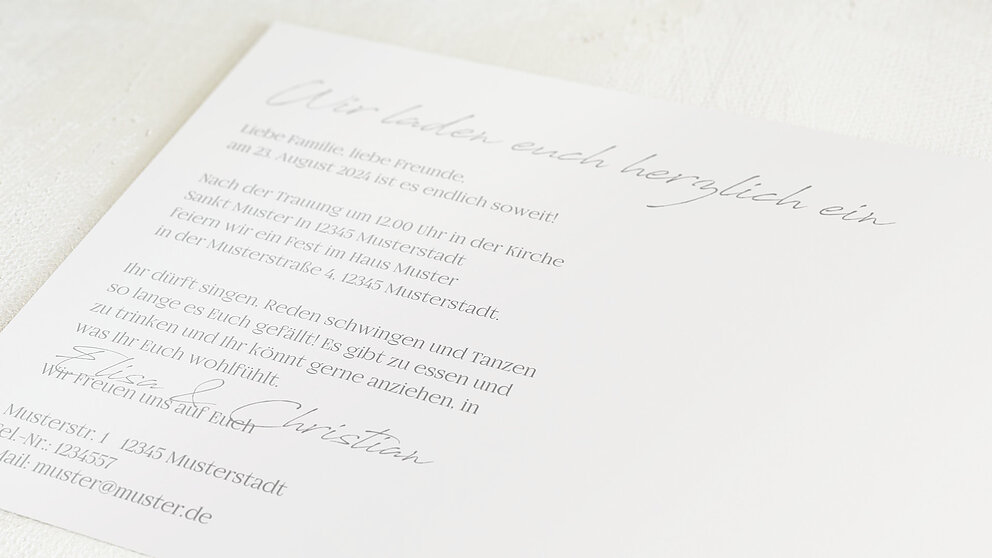 Wir laden euch herzlich ein
Liebe Familie, liebe Freunde,
am 23. August 2024 ist es endlich soweit!
Nach der Trauung um 12.00 Uhr in der Kirche
Sankt Muster In 12345 Musterstadt
Feiern wir ein Fest im Haus Muster
in der Musterstraße 4, 12345 Musterstadt.
Ihr dürft singen, Reden schwingen und Tanzen
so lange es Euch gefällt! Es gibt zu essen und
zu trinken und Ihr könnt gerne anziehen, in
was Ihr Euch wohlfühlt.
Wir Freuen uns auf Euch
Elisa & Christian
Musterstr. 1 12345 Musterstadt
Tel.-Nr.: 1234557
Mail: muster@muster.de